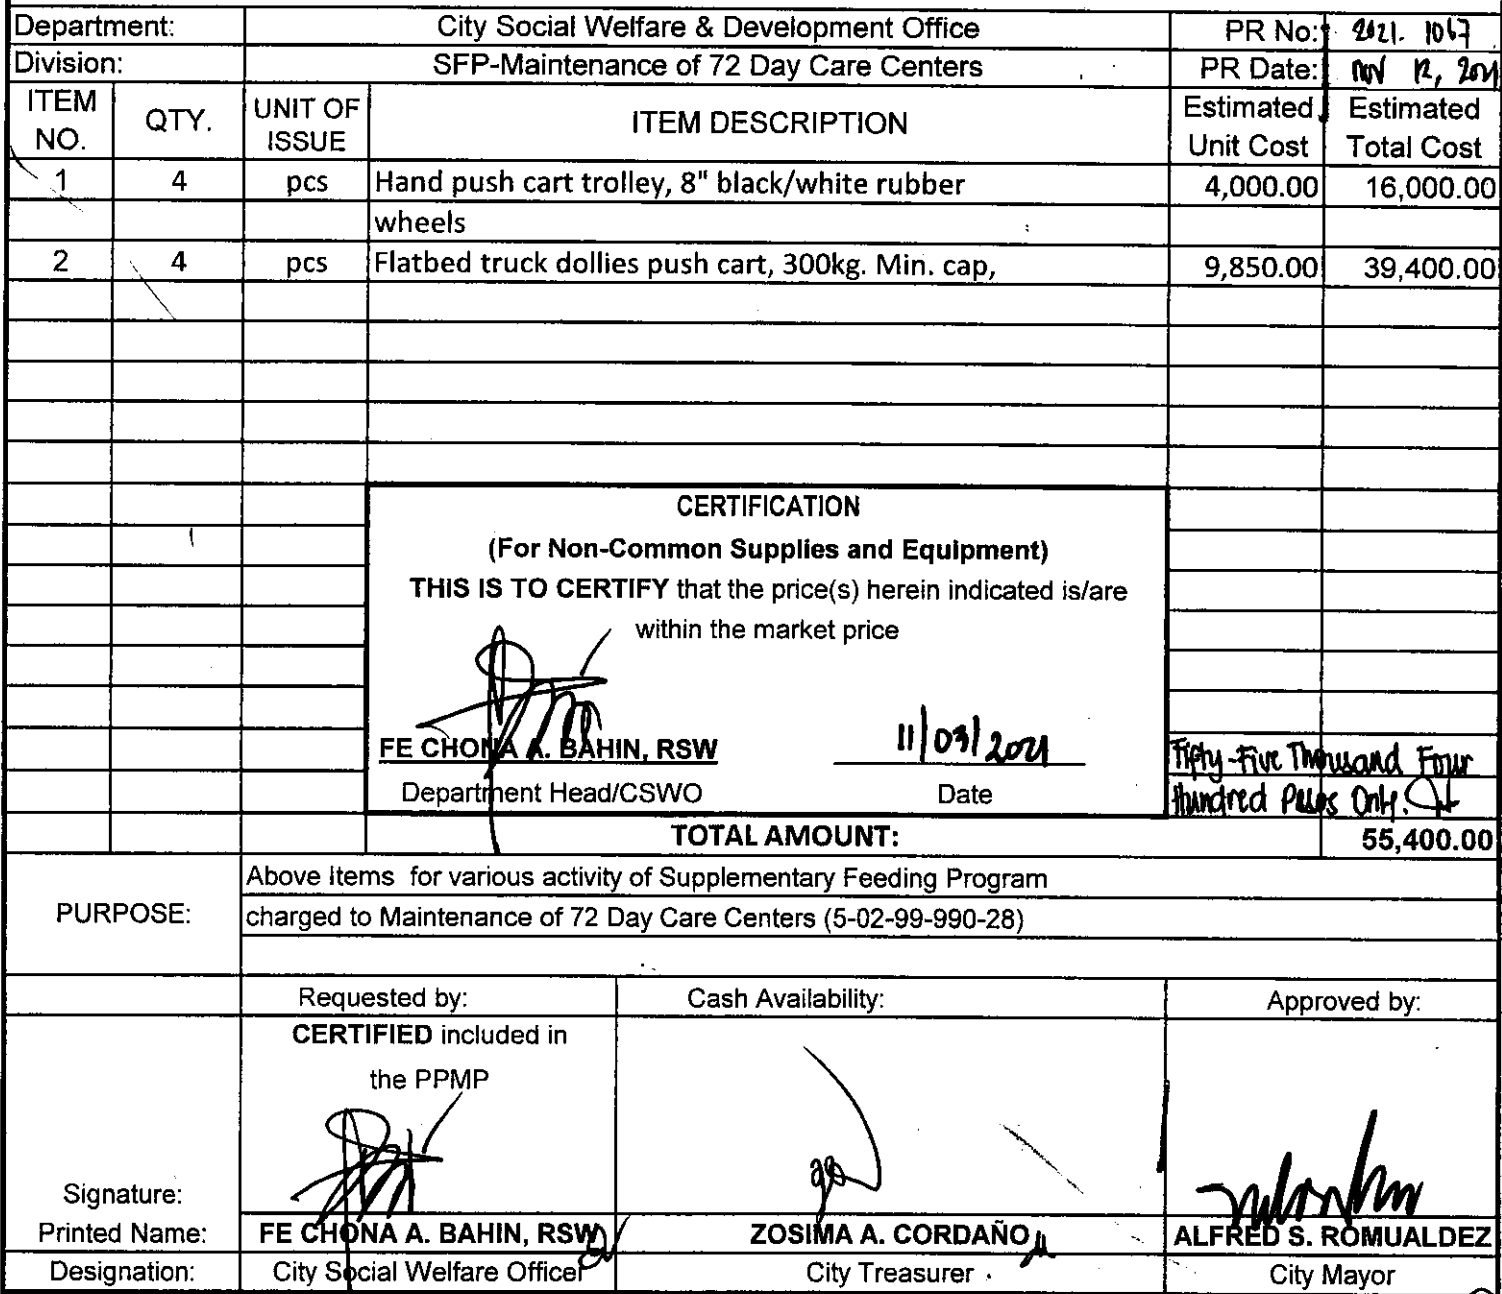 Department: City Social Welfare & Development Office PR No: 2021. 1067
Division: SFP-Maintenance of 72 Day Care Centers PR Date: Nov 12, 2021
ITEM NO. QTY. UNIT OF ISSUE ITEM DESCRIPTION Estimated Unit Cost Estimated Total Cost
1 4 pcs Hand push cart trolley, 8" black/white rubber 4,000.00 16,000.00
wheels
2 4 pcs Flatbed truck dollies push cart, 300kg. Min. cap, 9,850.00 39,400.00
CERTIFICATION
(For Non-Common Supplies and Equipment)
THIS IS TO CERTIFY that the price(s) herein indicated is/are
within the market price
FE CHONA A. BAHIN, RSW 11/03/2021
Department Head/CSWO Date
Fifty-Five Thousand Four
Hundred Pesos Only.
TOTAL AMOUNT: 55,400.00
PURPOSE: Above items for various activity of Supplementary Feeding Program
charged to Maintenance of 72 Day Care Centers (5-02-99-990-28)
Requested by: Cash Availability: Approved by:
CERTIFIED included in
the PPMP
Signature:
Printed Name: FE CHONA A. BAHIN, RSW ZOSIMA A. CORDAÑO ALFRED S. ROMUALDEZ
Designation: City Social Welfare Officer City Treasurer City Mayor